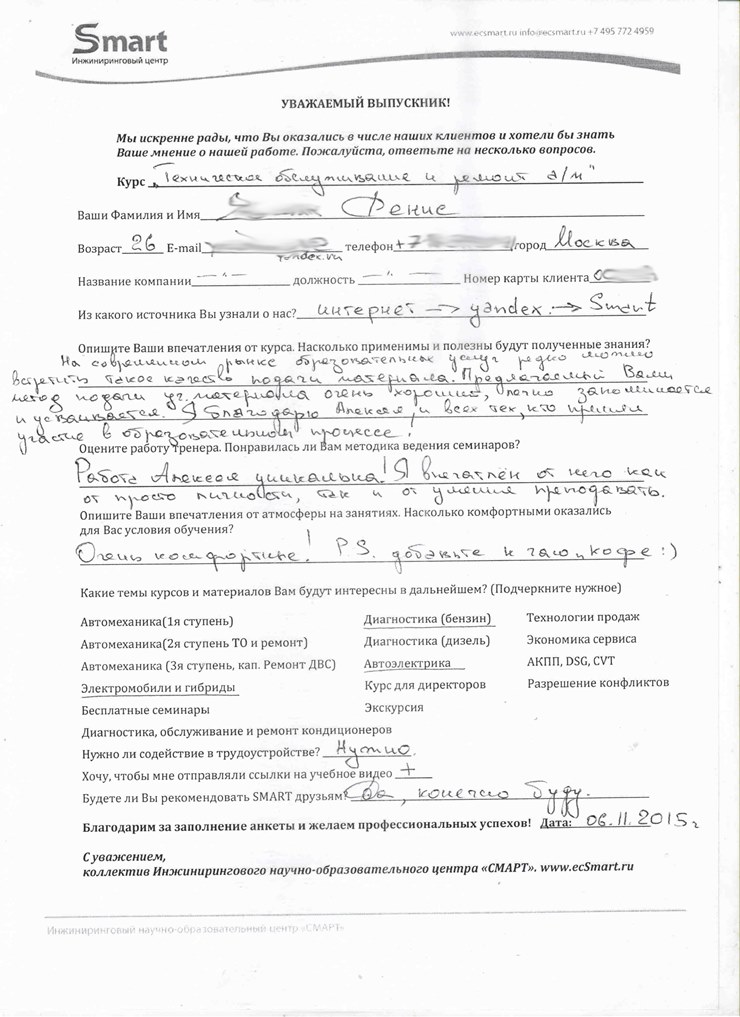 Smart
Инжиниринговый центр
www.ecsmart.ru info@ecsmart.ru +7 495 772 4959
УВАЖАЕМЫЙ ВЫПУСКНИК!
Мы искренне рады, что Вы оказались в числе наших клиентов и хотели бы знать
Ваше мнение о нашей работе. Пожалуйста, ответьте на несколько вопросов.
Курс „Техническое обслуживание и ремонт а/м"
Ваши Фамилия и Имя Денис
Возраст 26 E-mail yandex.ru телефон +7 город Москва
Название компании — " — должность — " — Номер карты клиента
Из какого источника Вы узнали о нас? интернет -> yandex -> Smart
Опишите Ваши впечатления от курса. Насколько применимы и полезны будут полученные знания?
На современном рынке образовательных услуг редко можно
встретить такое качество подачи материала. Предлагаемый Вами
метод подачи уч. материала очень хороший, легко запоминается
и усваивается. Я благодарю Алексея и всех тех, кто принял
участие в образовательном процессе.
Оцените работу тренера. Понравилась ли Вам методика ведения семинаров?
Работа Алексея уникальна! Я впечатлён от него как
от просто личности, так и от умения преподавать.
Опишите Ваши впечатления от атмосферы на занятиях. Насколько комфортными оказались
для Вас условия обучения?
Очень комфортные! P.S. добавьте к чаю кофе :)
Какие темы курсов и материалов Вам будут интересны в дальнейшем? (Подчеркните нужное)
Автомеханика(1я ступень) Диагностика (бензин) Технологии продаж
Автомеханика(2я ступень ТО и ремонт) Диагностика (дизель) Экономика сервиса
Автомеханика (3я ступень, кап. Ремонт ДВС) Автоэлектрика АКПП, DSG, CVT
Электромобили и гибриды Курс для директоров Разрешение конфликтов
Бесплатные семинары Экскурсия
Диагностика, обслуживание и ремонт кондиционеров
Нужно ли содействие в трудоустройстве? Нужно.
Хочу, чтобы мне отправляли ссылки на учебное видео +
Будете ли Вы рекомендовать SMART друзьям? Да, конечно буду.
Благодарим за заполнение анкеты и желаем профессиональных успехов! Дата: 06.11.2015г
С уважением,
коллектив Инжинирингового научно-образовательного центра «СМАРТ». www.ecSmart.ru
Инжиниринговый научно-образовательный центр «СМАРТ»